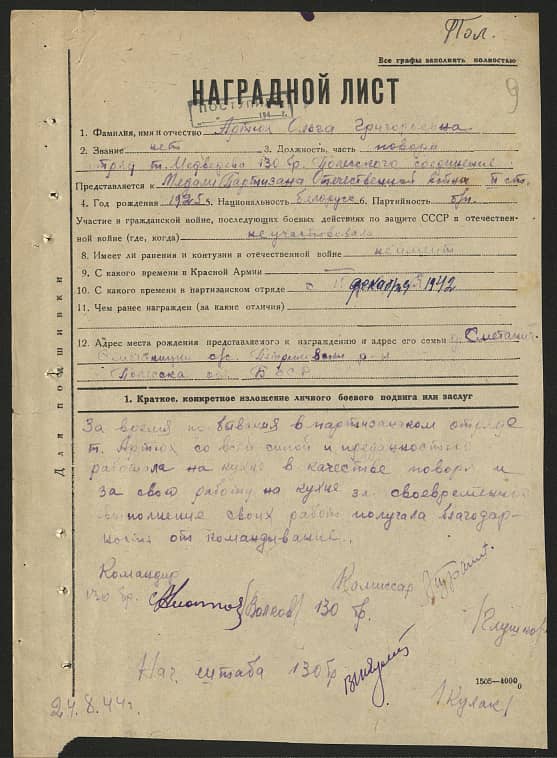 Пол.
Все графы заполнить полностью
НАГРАДНОЙ ЛИСТ
9
ПОСТУПИЛ
194 г.
1. Фамилия, имя и отчество Артюх Ольга Григорьевна
2. Звание нет 3. Должность, часть повара
отряд т. Медведева 130 бр. Полесского соединения
Представляется к Медали Партизана Отечественной война II ст.
4. Год рождения 1925 5. Национальность белорус 6. Партийность б/п.
Участие в гражданской войне, последующих боевых действиях по защите СССР в отечествен-
ной войне (где, когда) не участвовала
8. Имеет ли ранения и контузии в отечественной войне не имеет
9. С какого времени в Красной Армии —
10. С какого времени в партизанском отряде с декабря 1942
11. Чем ранее награжден (за какие отличия)
12. Адрес места рождения представляемого к награждению и адрес его семьи д. Сметаничи
с/с. р-н
БССР
Для подшивки
1. Краткое, конкретное изложение личного боевого подвига или заслуг
За время пребывания в партизанском отряде
т. Артюх со всей силой и преданностью
работала на кухне в качестве повара и
за свою работу на кухне за своевременное
выполнение своих работ получала благодар-
ности от командивания.
Командир Комиссар
130 бр. /Волков/ 130 бр.
/Глушко/
Нач. штаба 130 бр
1505—4000
24.8.44г. /Кулак/